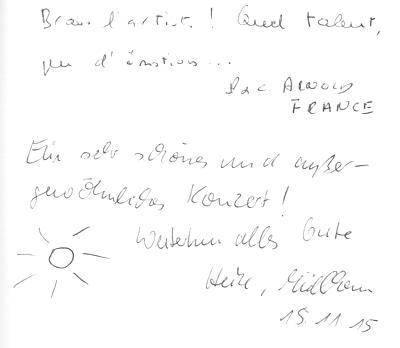 Bravo l'artiste ! Quel talent,
que d'émotions...
ARNOLD
FRANCE
Ein sehr schönes und außer-
gewöhnliches Konzert!
Weiterhin alles Gute
Heike,
15.11.15